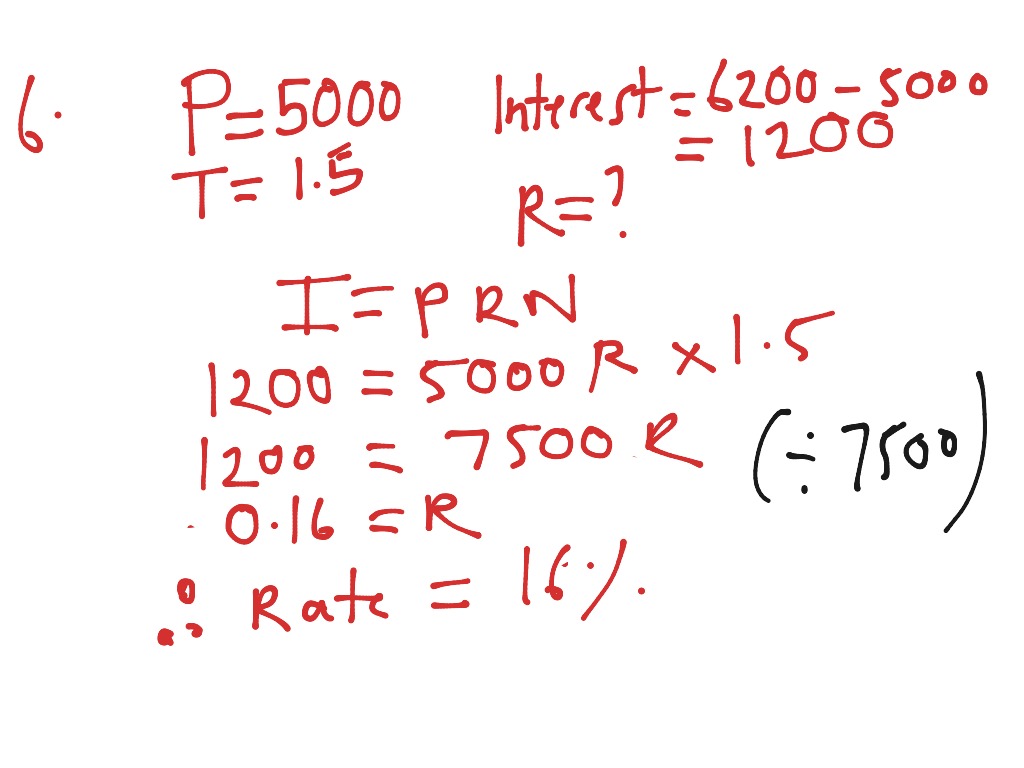 6.
P = 5000
T = 1.5
Interest = 6200 - 5000
= 1200
R = ?
I = PRN
1200 = 5000 R × 1.5
1200 = 7500 R (÷ 7500)
0.16 = R
∴ Rate = 16%.